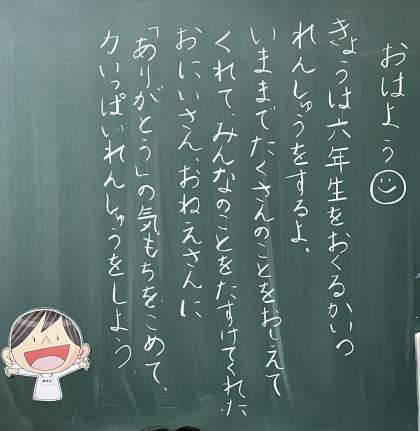 おはよう
きょうは六年生をおくるかいの
れんしゅうをするよ。
いままでたくさんのことをおしえて
くれて、みんなのことをたすけてくれた
おにいさん、おねえさんに
「ありがとう」の気もちをこめて、
力いっぱいれんしゅうをしよう